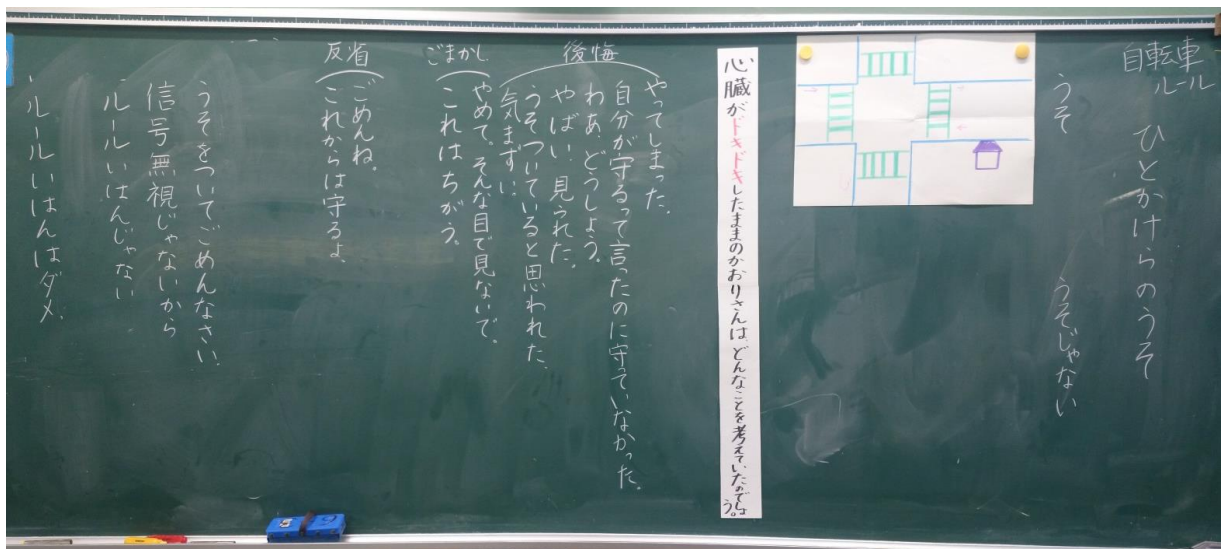 自転車
ルール
ひとかけらのうそ
うそ
うそじゃない
心臓がドキドキしたままのかおりさんは、どんなことを考えていたのでしょう。
後悔
やってしまった。
自分が守るって言ったのに守っていなかった。
わあ、どうしよう。
やばい、見られた。
うそついていると思われた。
気まずい。
ごまかし
やめて。そんな目で見ないで。
これはちがう。
反省
ごめんね。
これからは守るよ。
うそをついてごめんなさい。
信号無視じゃないから
ルールいはんじゃない
ルールいはんはダメ。